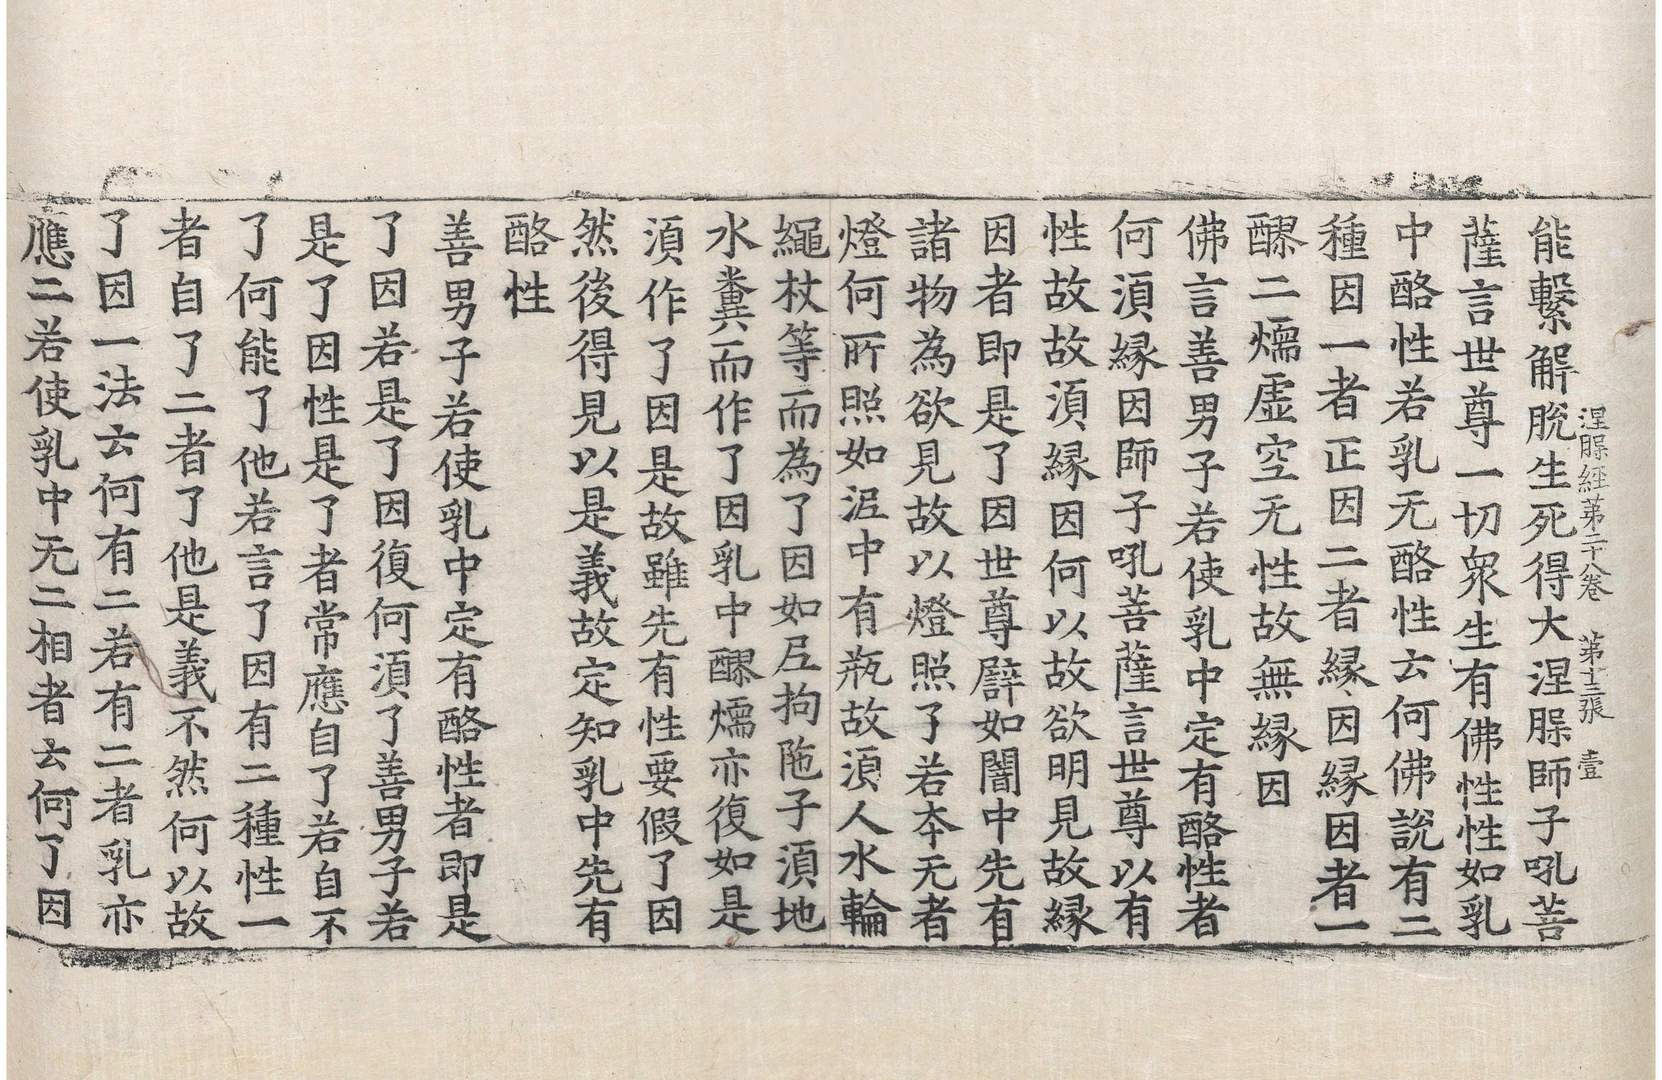 涅槃經第二十八卷 第十三張 壹
能繫解脫生死得大涅槃師子吼菩
薩言世尊一切衆生有佛性性如乳
中酪性若乳无酪性云何佛說有二
種因一者正因二者縁因縁因者一
醪二煗虛空无性故無縁因
佛言善男子若使乳中定有酪性者
何湏縁因師子吼菩薩言世尊以有
性故故湏縁因何以故欲明見故縁
因者即是了因世尊譬如闇中先有
諸物為欲見故以燈照了若本无者
燈何所照如泥中有瓶故湏人水輪
繩杖等而為了因如尼拘陁子湏地
水糞而作了因乳中醪煗亦復如是
湏作了因是故雖先有性要假了因
然後得見以是義故定知乳中先有
酪性
善男子若使乳中定有酪性者即是
了因若是了因復何湏了善男子若
是了因性是了者常應自了若自不
了何能了他若言了因有二種性一
者自了二者了他是義不然何以故
了因一法云何有二若有二者乳亦
應二若使乳中无二相者云何了因